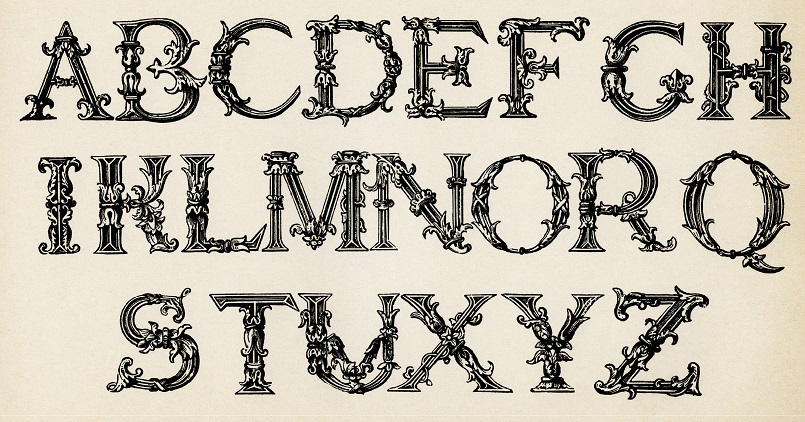 ABCDEFGH
IKLMNORQ
STUXYZ